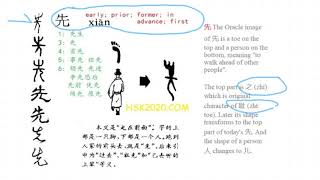 先 early; prior; former; in
advance; first
xiān
1: 先生
2: 先后
3: 首先
4: 事先 祖先
5: 领先 先进
争先恐后
HSK2020.COM
本义是“走在前面”。字的上
部是一只脚,下部是一个人,跑到
人家的前头去,就是“先”。后来引申
为“过去”、“祖先”和“已去世的上
辈”等义。
先 The Oracle image
of 先 is a toe on the
top and a person on the
bottom, meaning "to
walk ahead of other
people".
The top part is 之 (zhi)
which is original
character of 趾 (zhi)
toe. Later its shape
transforms to the top
part of today's 先. And
the shape of a person
人 changes to 儿.